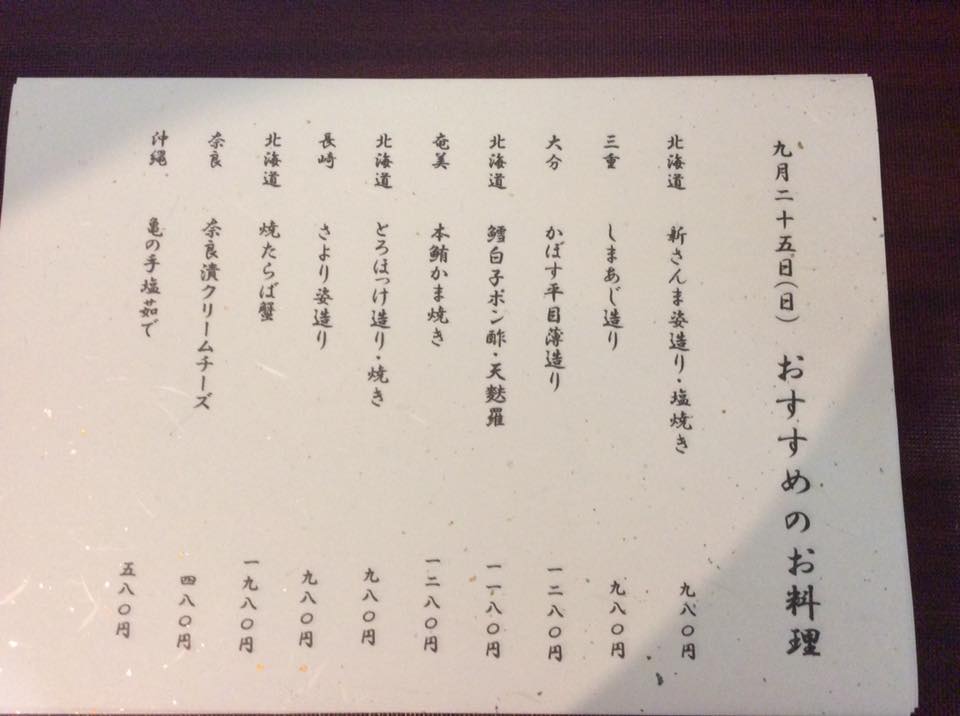 九月二十五日(日) おすすめのお料理
北海道 新さんま姿造り・塩焼き 九八〇円
三重 しまあじ造り 九八〇円
大分 かぼす平目薄造り 一二八〇円
北海道 鱈白子ポン酢・天麩羅 一一八〇円
奄美 本鮪かま焼き 一二八〇円
北海道 とろほっけ造り・焼き 九八〇円
長崎 さより姿造り 九八〇円
北海道 焼たらば蟹 一九八〇円
奈良 奈良漬クリームチーズ 四八〇円
沖縄 亀の手塩茹で 五八〇円